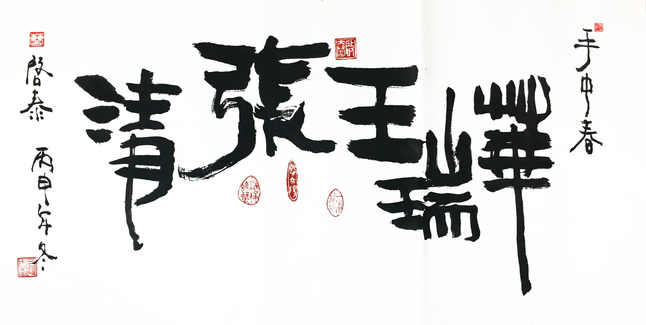 手中春
華瑞王張清
啓泰 丙申年冬